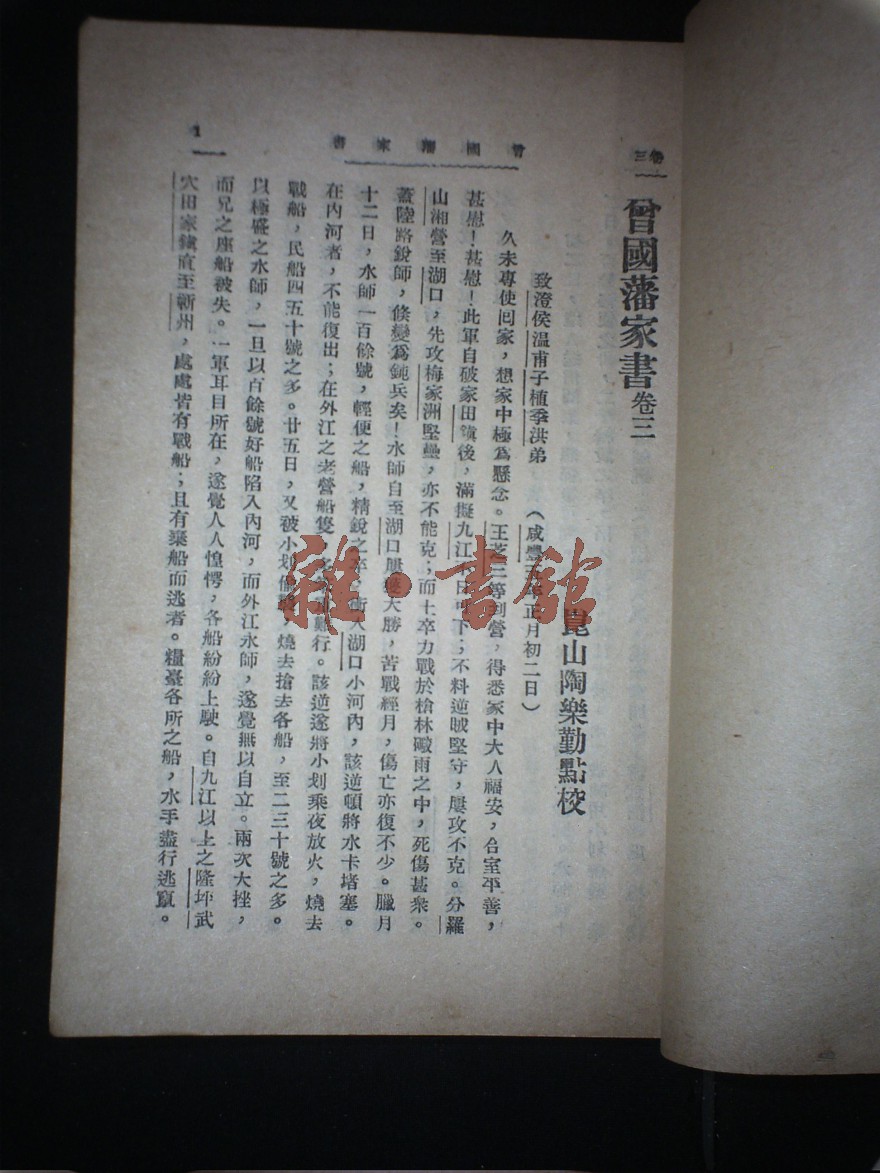 卷三
曾國藩家書卷三
崑山陶樂勤點校
致澄侯溫甫子植季洪弟（咸豐五年正月初二日）
久未專使囘家，想家中極爲懸念。王芝三等到營，得悉家中大人福安，合室平善，
甚慰！甚慰！此軍自破家田鎭後，滿擬九江不日可下；不料逆賊堅守，屢攻不克。分羅
山湘營至湖口，先攻梅家洲堅壘，亦不能克；而士卒力戰於槍林礮雨之中，死傷甚衆。
蓋陸路銳師，倐變爲鈍兵矣！水師自至湖口屢獲大勝，苦戰經月，傷亡亦復不少。臘月
十二日，水師一百餘號，輕便之船，精銳之卒，衝入湖口小河內，該逆頓將水卡堵塞。
在內河者，不能復出；在外江之老營船隻，行。該逆遂將小划乘夜放火，燒去
戰船，民船四五十號之多。廿五日，又被小划偷襲，燒去搶去各船，至二三十號之多。
以極盛之水師，一旦以百餘號好船陷入內河，而外江水師，遂覺無以自立。兩次大挫，
而兄之座船被失。一軍耳目所在，遂覺人人惶愕，各船紛紛上駛。自九江以上之隆坪武
穴田家鎭直至蘄州，處處皆有戰船；且有棄船而逃者。糧臺各所之船，水手盡行逃竄。
曾國藩家書
1
雜·書館